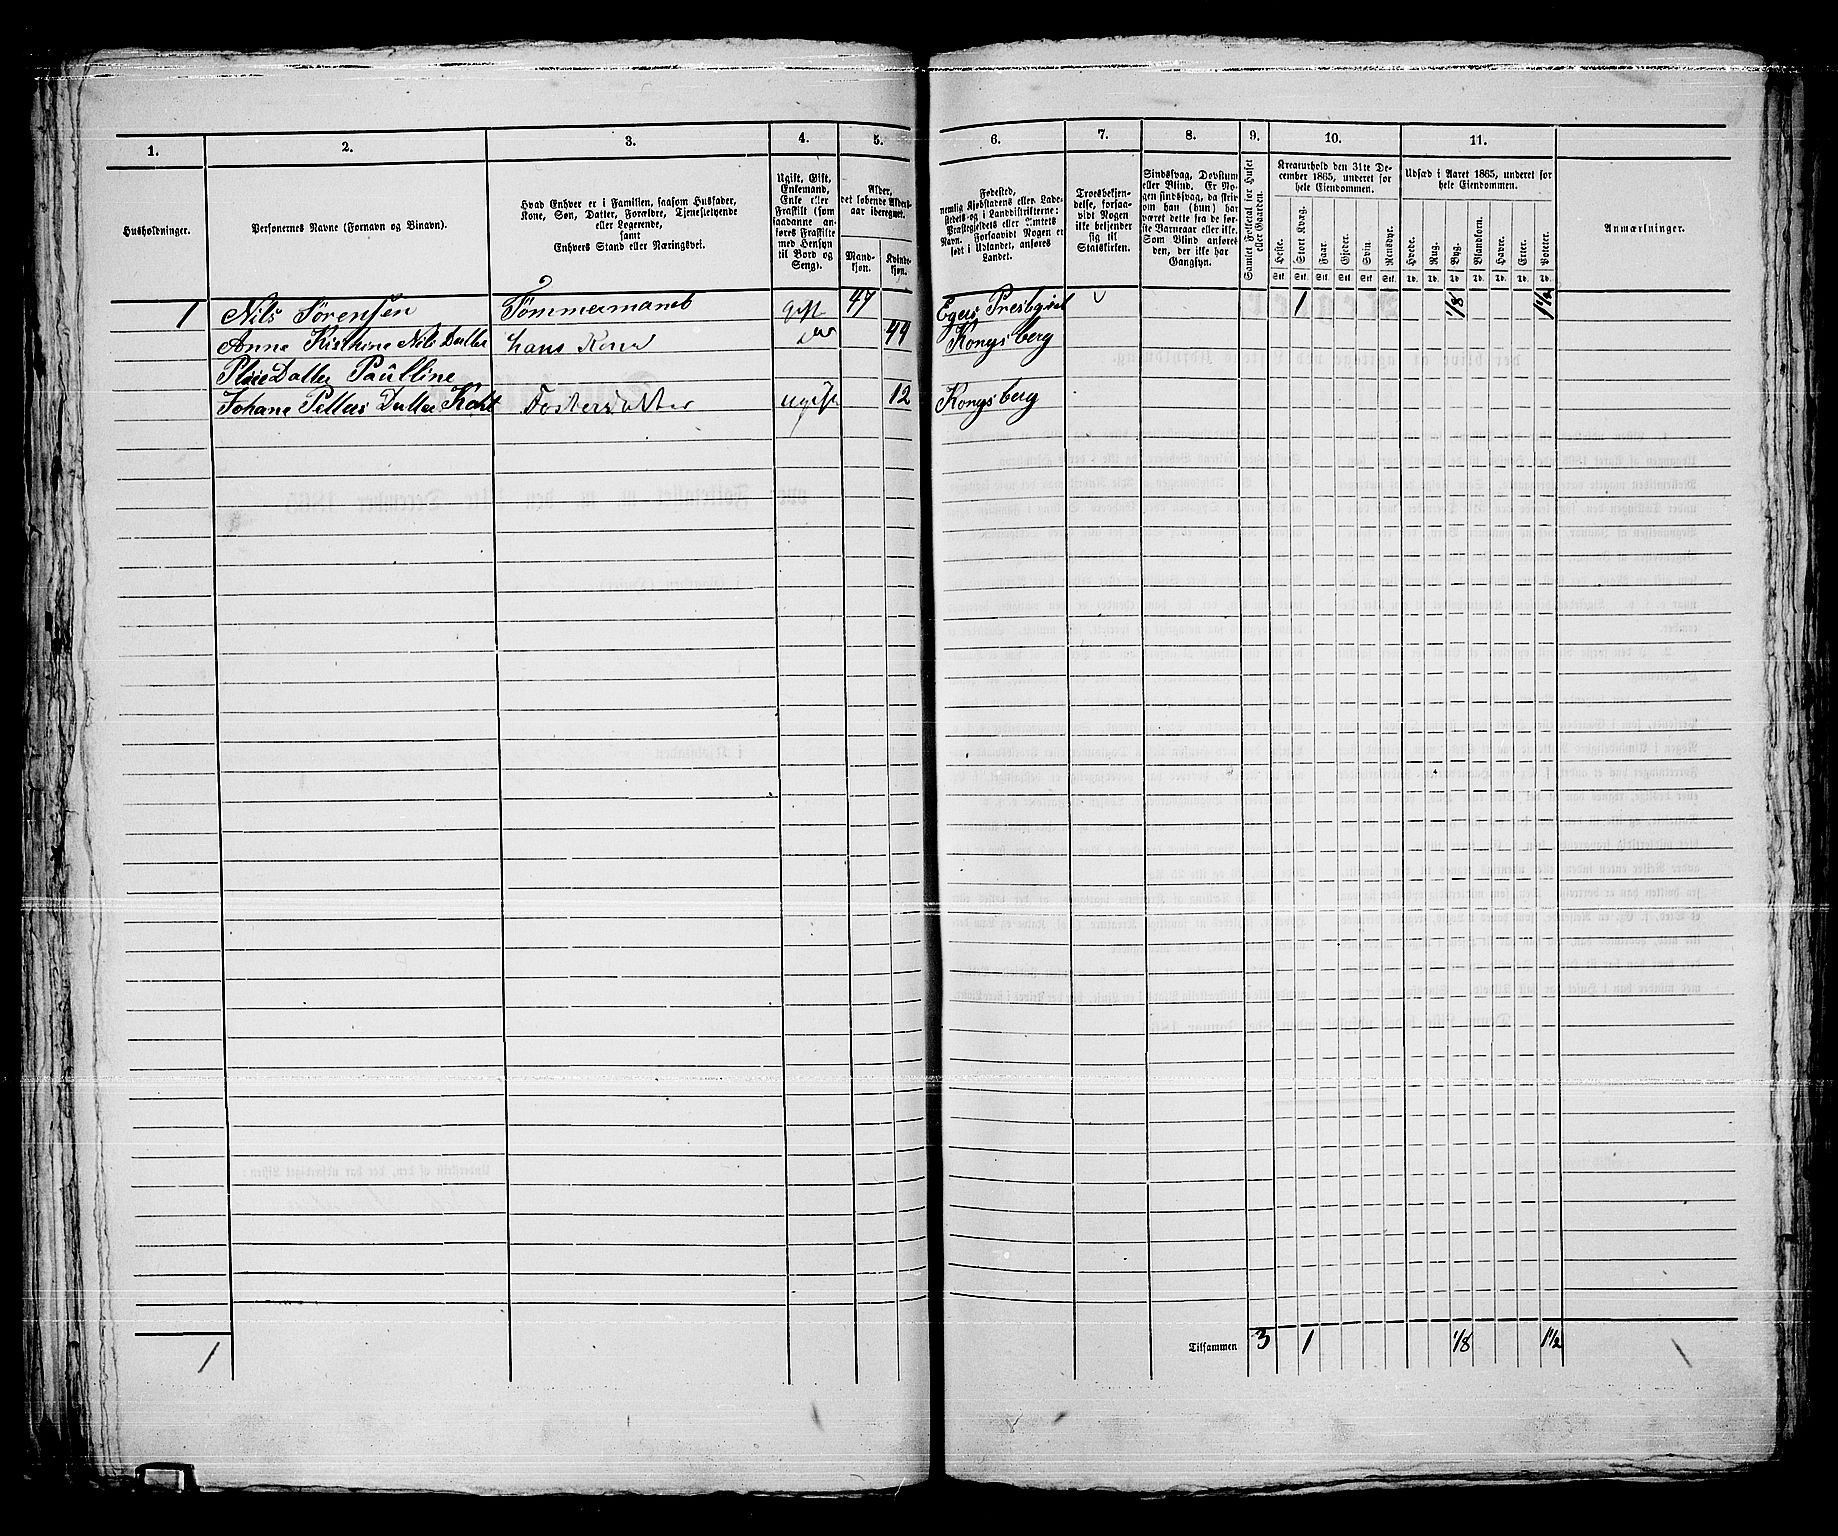 1. 2. 3. 4. 5. 6. 7. 8. 9. 10. 11.
Husholdninger.
Personernes Navne (Fornavn og Binavn).
Hvad Enhver er i Familien, saasom Husfader,
Kone, Søn, Datter, Forældre, Tjenestetyende
eller Logerende,
samt
Enhvers Stand eller Næringsvei.
Ugift, Gift,
Enkemand,
Enke eller
Fraskilt (som
saadanne an-
føres Fraskilte
med Hensyn
til Bord og
Seng).
Alder,
det løbende Alders-
aar iberegnet.
Mand-
kjøn.
Kvinde-
kjøn.
Fødested,
nemlig Kjøbstadens eller Lade-
stedets og i Landdistrikterne:
Præstegjeldets eller Amtets
Navn. Forsaavidt Nogen er
født i Udlandet, anføres
Landet.
Troesbekjen-
delse, forsaa-
vidt Nogen
ikke bekjender
sig til
Statskirken.
Sindssvag, Døvstum
eller Blind. Er No-
gen sindssvag, da skriv
om han (hun) har
været dette fra de før-
ste Barneaar eller ikke.
Som Blind anføres
den, der ikke har
Gangsyn.
Samlet Folketal for Huset
eller Gaarden.
Kreaturhold den 31te De-
cember 1865, underet for
hele Eiendommen.
Heste. Stort Kvæg. Faar. Gjeder. Svin. Rensdyr.
Stk. Stk. Stk. Stk. Stk. Stk.
Udsæd i Aaret 1865, underet for
hele Eiendommen.
Hvede. Rug. Byg. Blandkorn. Havre. Erter. Poteter.
Td. Td. Td. Td. Td. Td. Td.
Anmærkninger.
1 Nils Sørensen Tømmermand Gift 47 Egers Presbgjel 1 1/8 1 1/2
Anne Kisthine Nils Datter hans Kone do 44 Kongsberg
Datter Paulline
Johane Petters Datter Foster Datter ugift 12 Kongsberg
1 Tilsammen 3 1 1/8 1 1/2